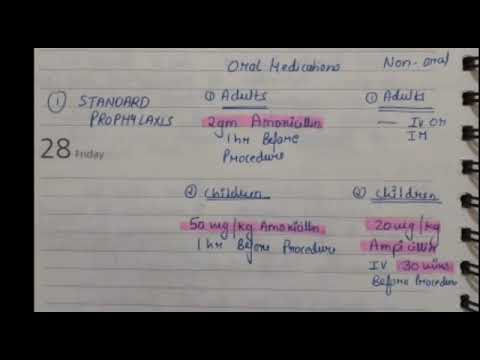 Oral Medications Non-oral
① STANDARD PROPHYLAXIS
28 Friday
① Adults
2gm Amoxicillin
1 hr Before
Procedure
① Adults
— IV OR
IM
② Children
50 mg/kg Amoxicillin
1 hr Before Procedure
② Children
20 mg/kg
Ampicillin
IV 30 mins
Before Procedure